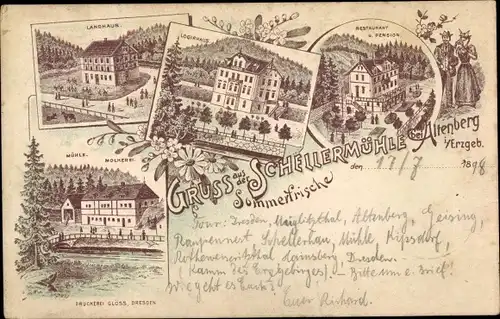 LANDHAUS.
LOGIRHAUS
RESTAURANT
u. PENSION.
MÜHLE.
MOLKEREI.
GRUSS aus der SCHELLERMÜHLE Altenberg
Sommerfrische
i/Erzgeb.
den 17/7 1898
Tour: Dresden, Müglitzthal, Altenberg, Geising,
Schellerhau, Mühle, Kipsdorf,
Hainsberg, Dresden.
(Kamm des Erzgebirges) – Bitte um e. Brief!
Wie geht es Euch?
Euer Richard.
DRUCKEREI GLÖSS, DRESDEN